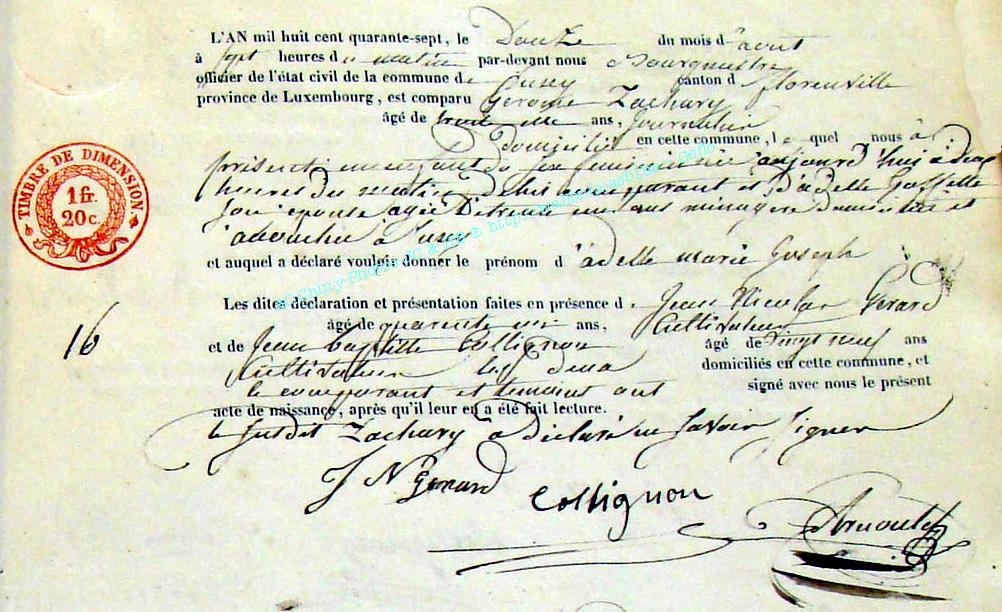 L'AN mil huit cent quarante-sept, le Douze du mois d'aout
à sept heures du matin par-devant nous Bourgmestre
officier de l'état civil de la commune de canton d florenville
province de Luxembourg, est comparu Gerome Zachary
âgé de trente ans, journalier
Domicilié en cette commune, lequel nous à
présenté un enfant du sexe feminin née aujourd'hui à deux
heures du matin de lui comparant et d'adelle Gosselle
son épouse agée De trente un ans ménagère domiciliée et
accouchée à
et auquel a déclaré vouloir donner le prénom d'adelle marie Joseph
Les dites déclaration et présentation faites en présence de Jean Nicolas Gerard
âgé de quarante un ans, Cultivateur
et de Jean Baptiste Collignon âgé de vingt neuf ans
Cultivateur les deux domiciliés en cette commune, et
le comparant et temoins ont signé avec nous le présent
acte de naissance, après qu'il leur en a été fait lecture.
le susdit Zachary a déclaré ne savoir signer
J N Gerard
Collignon
Arnould
TIMBRE DE DIMENSION
1 fr.
20 c.
16